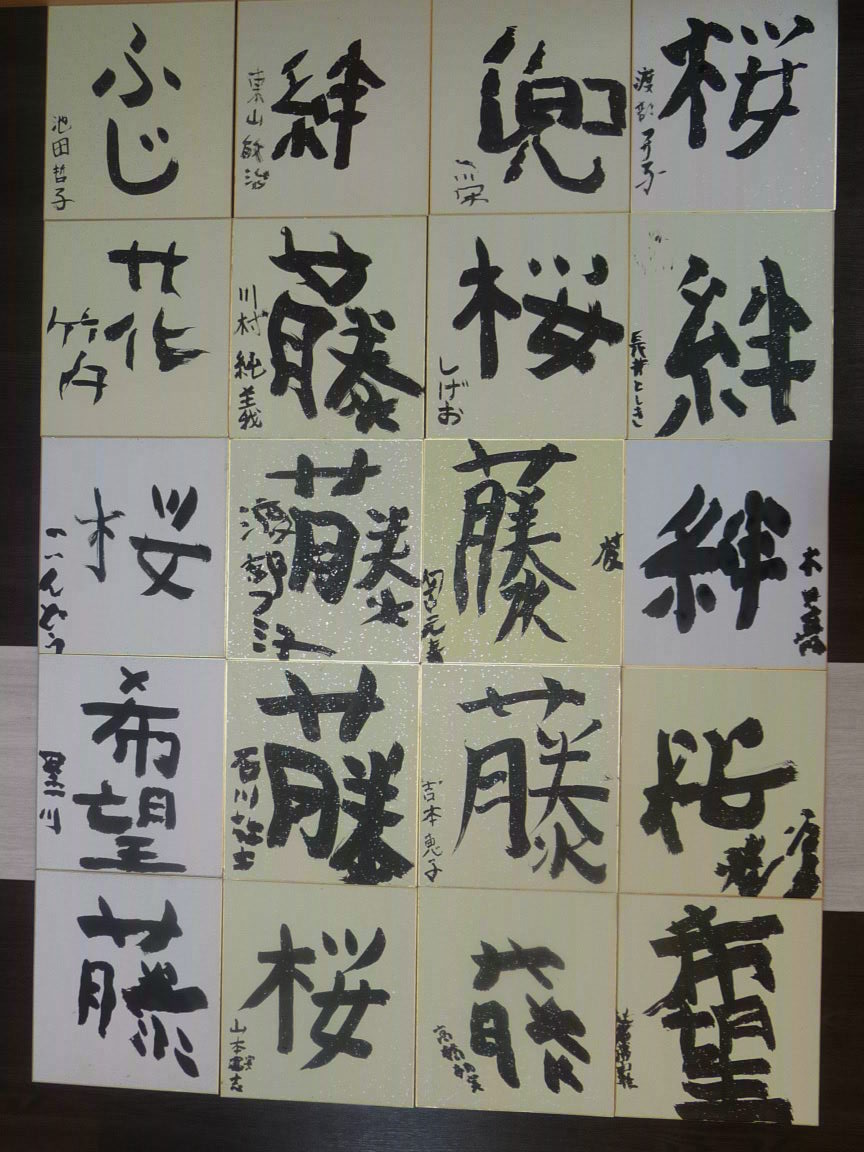 ふじ
池田哲子
絆
東山敏治
兜
桜
花
竹内
藤
川村純義
桜
しげお
絆
長井としき
桜
こんどう
藤
渡部フミ子
藤
絆
希望
黒川
藤
藤
吉本恵子
桜
藤
桜
山本憲志
藤
希望